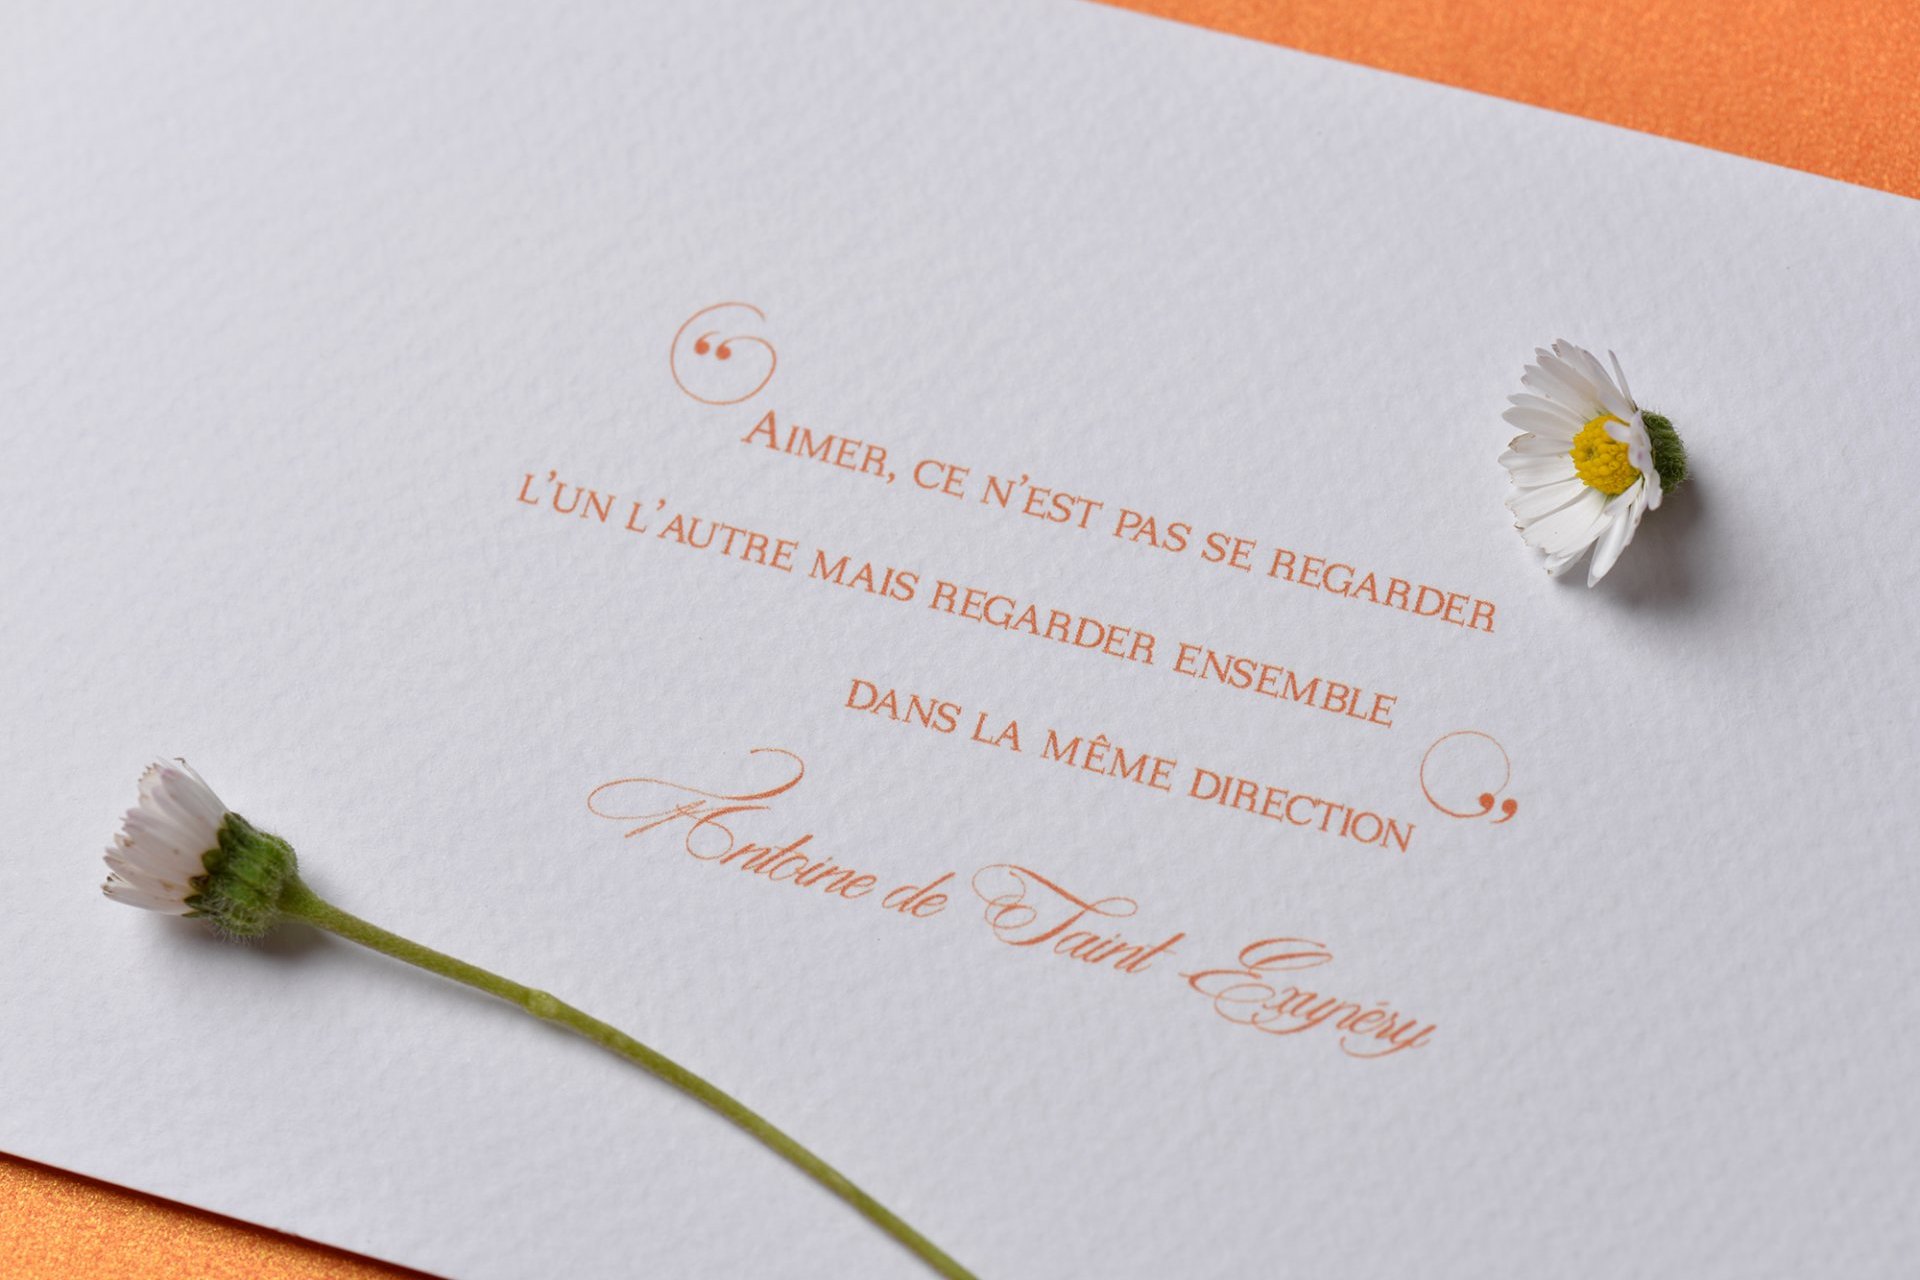 “Aimer, ce n’est pas se regarder
l’un l’autre mais regarder ensemble
dans la même direction”
Antoine de Saint Exupéry